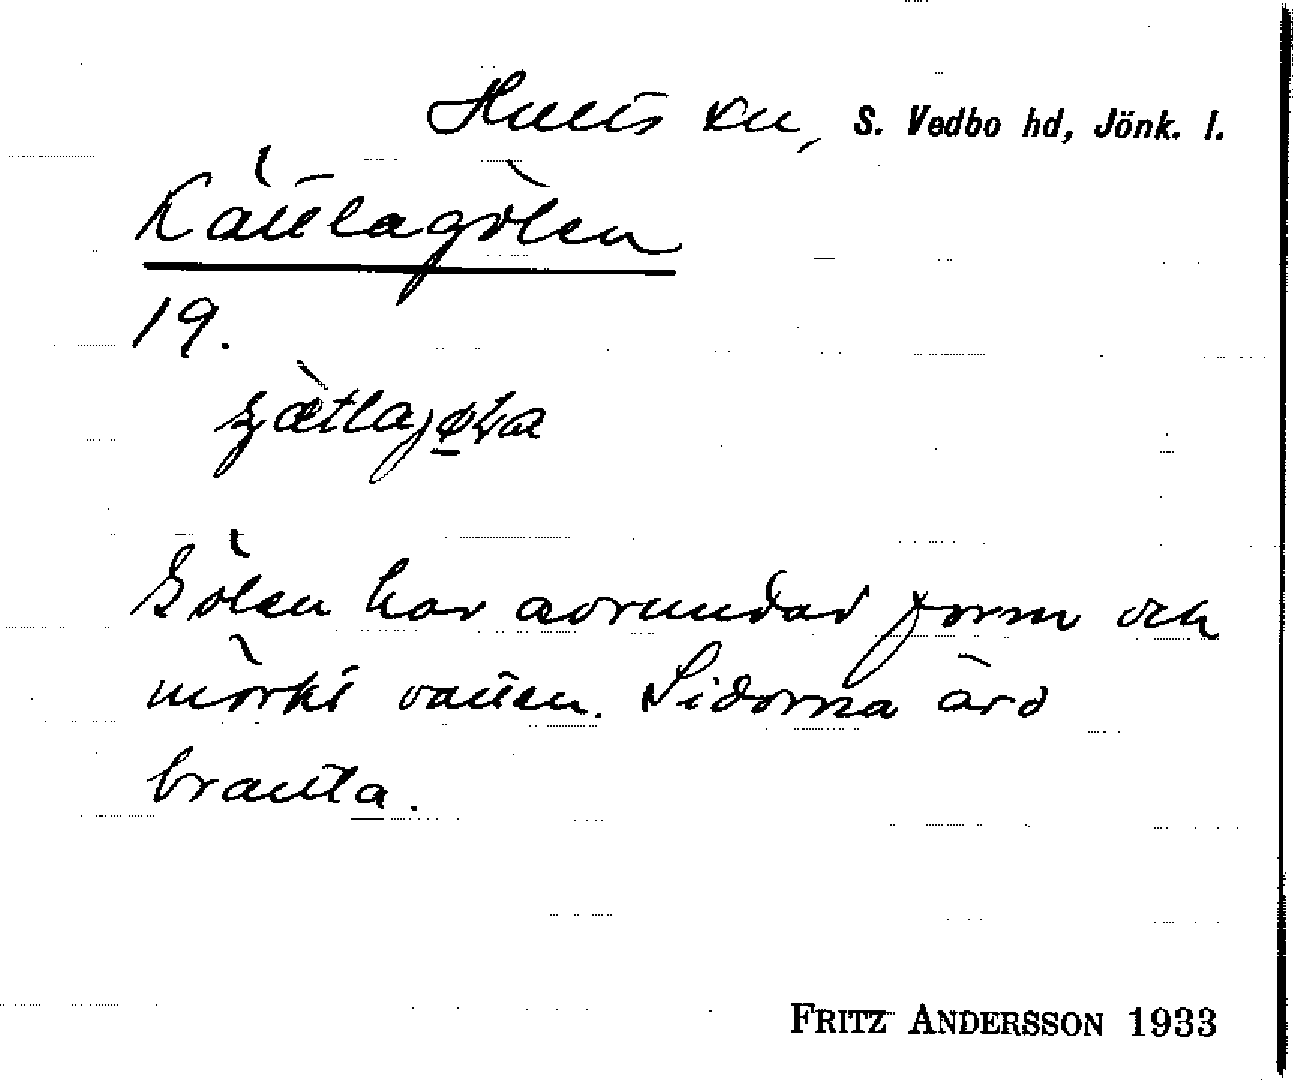 Hults sn, S. Vedbo hd, Jönk. l.
Kättlagölen
19.
Gölen har avrundad form och
mörkt vatten. Sidorna äro
branta.
FRITZ ANDERSSON 1933